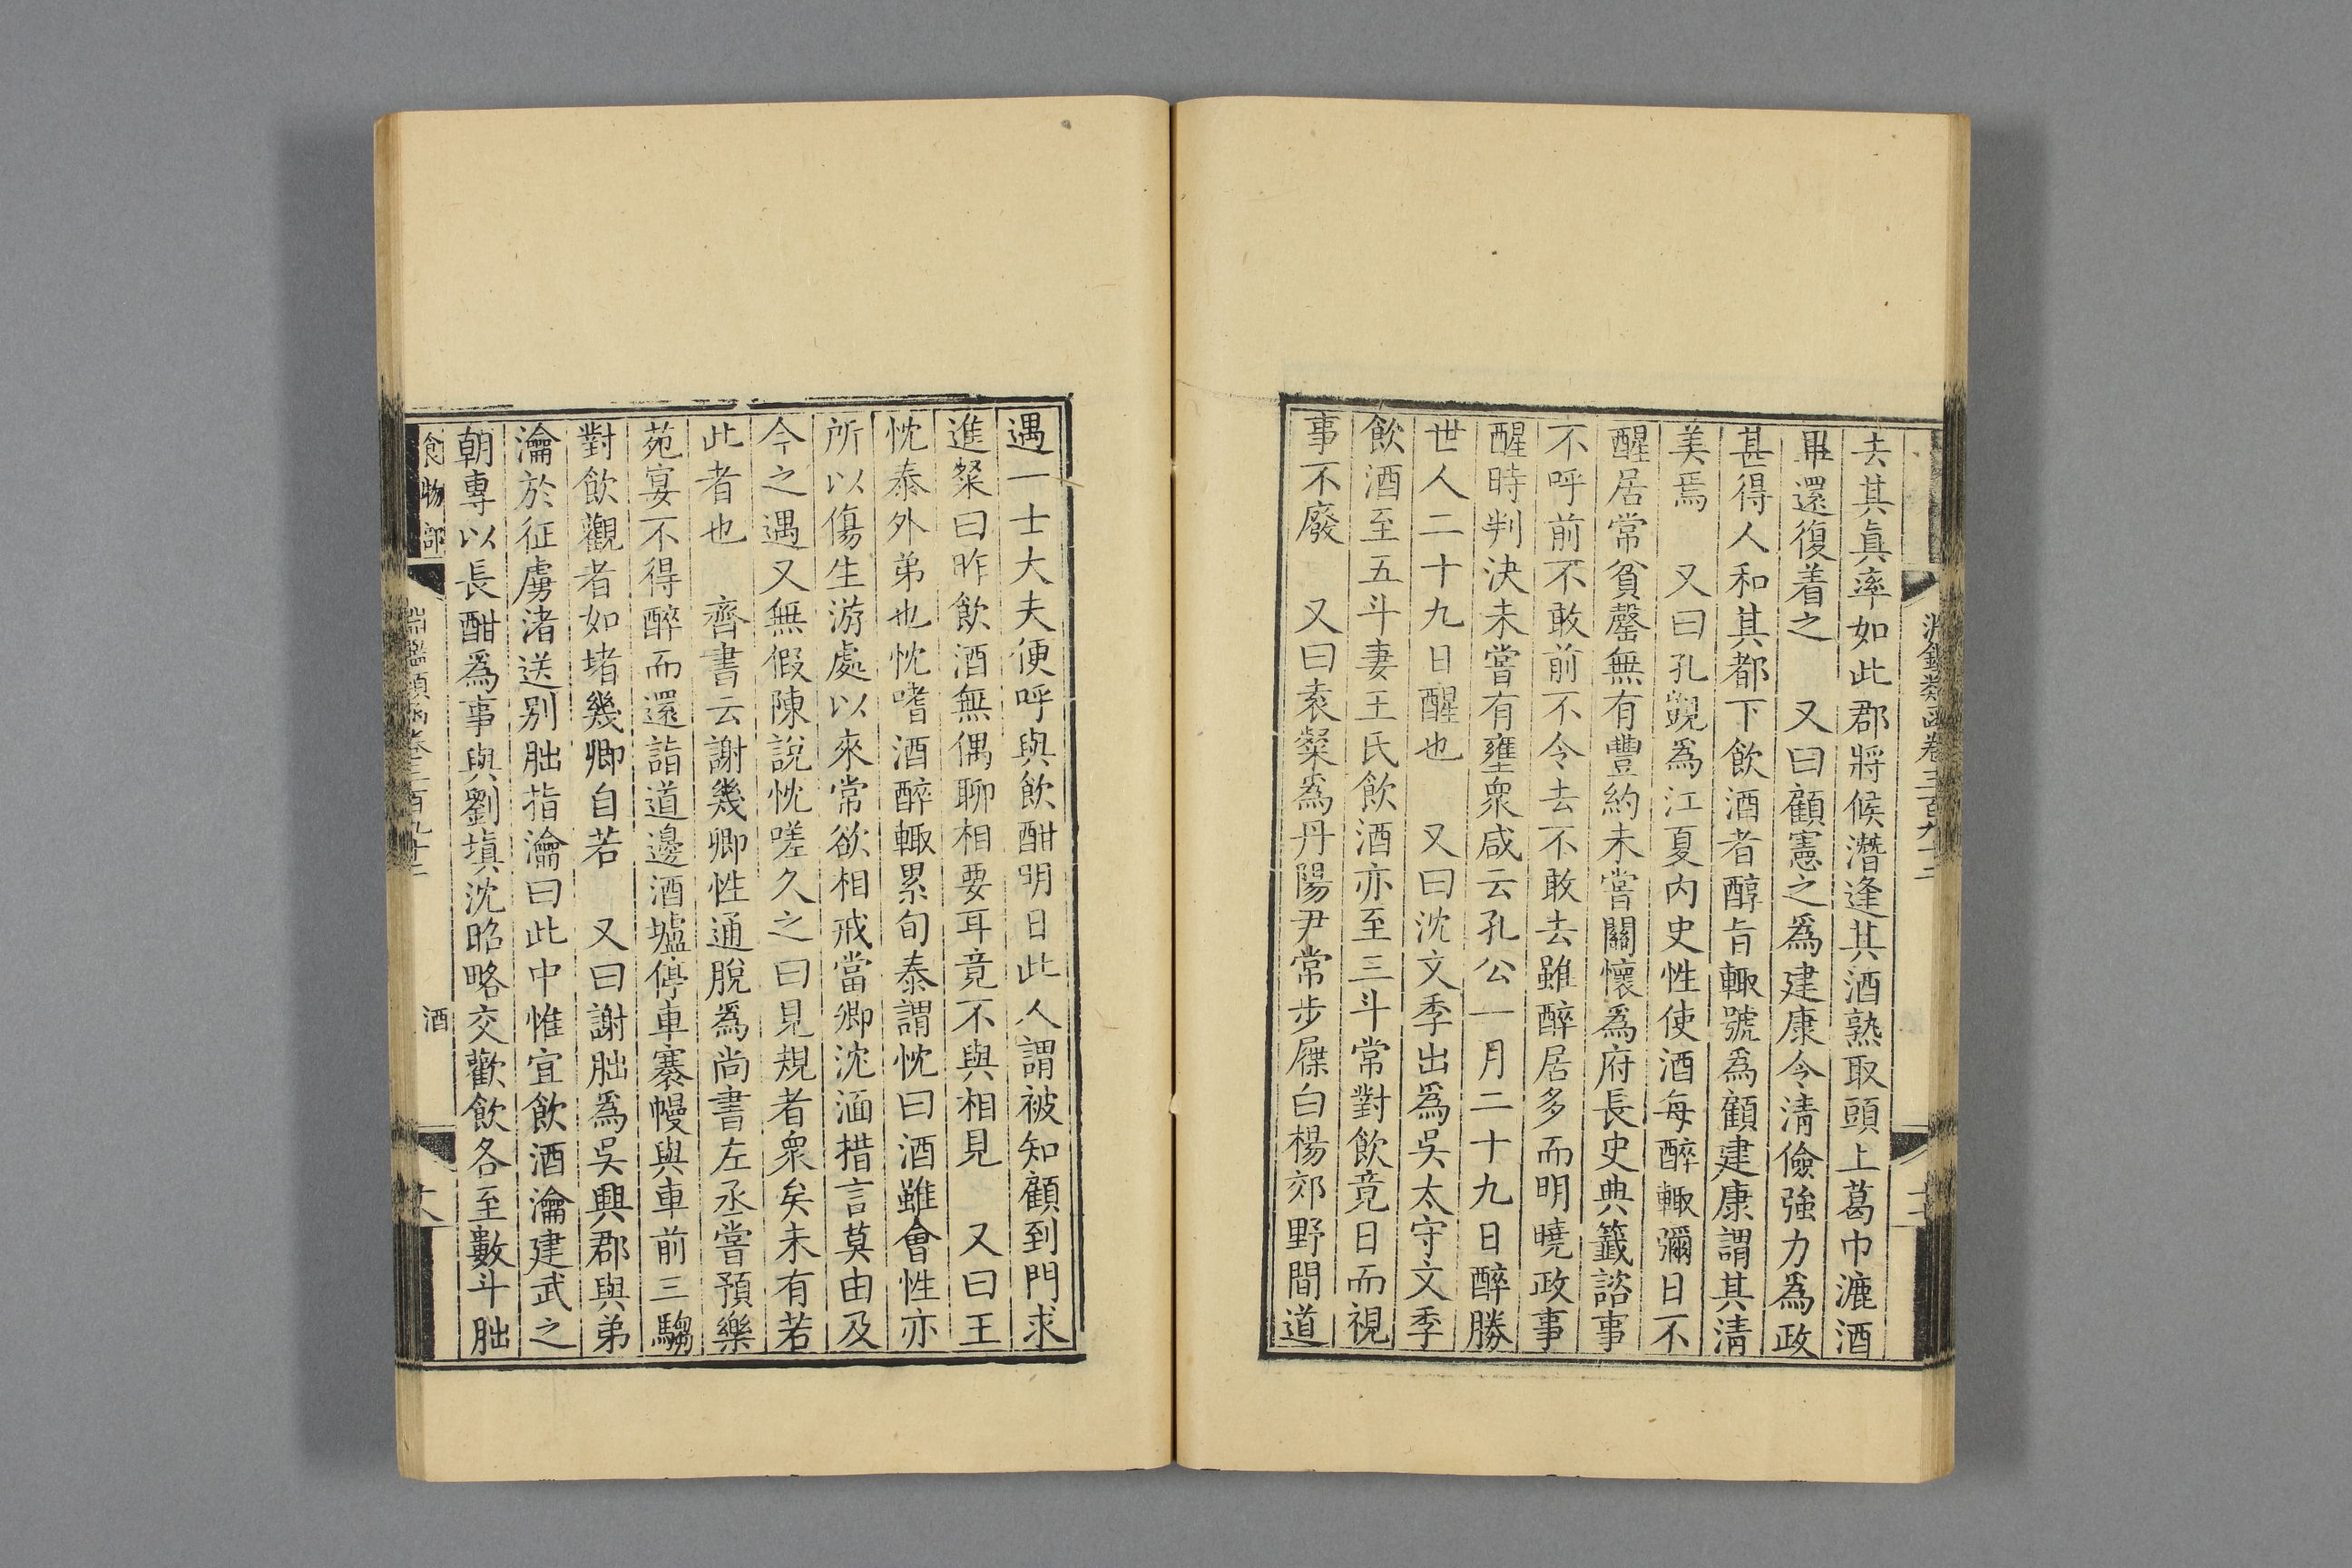 淵鑑類函卷三百九十二
去其眞率如此郡將候潛逢其酒熟取頭上葛巾漉酒
畢還復着之　又曰顧憲之爲建康令清儉強力爲政
甚得人和其都下飲酒者醇旨輙號爲顧建康謂其清
美焉　又曰孔覬爲江夏內史性使酒每醉輙彌日不
醒居常貧罄無有豐約未嘗關懷爲府長史典籤諮事
不呼前不敢前不令去不敢去雖醉居多而明曉政事
醒時判決未嘗有壅衆咸云孔公一月二十九日醉勝
世人二十九日醒也　又曰沈文季出爲吳太守文季
飲酒至五斗妻王氏飲酒亦至三斗常對飲竟日而視
事不廢　又曰袁粲爲丹陽尹常步屧白楊郊野間道
遇一士大夫便呼與飲酣明日此人謂被知顧到門求
進粲曰昨飲酒無偶聊相要耳竟不與相見　又曰王
忱泰外弟也忱嗜酒醉輙累旬泰謂忱曰酒雖會性亦
所以傷生游處以來常欲相戒當卿沈湎措言莫由及
今之遇又無假陳說忱嗟久之曰見規者衆矣未有若
此者也　齊書云謝幾卿性通脫爲尚書左丞嘗預樂
苑宴不得醉而還詣道邊酒壚停車褰幔與車前三騶
對飲觀者如堵幾卿自若　又曰謝朏爲吳興郡與弟
瀹於征虜渚送别朏指瀹曰此中惟宜飲酒瀹建武之
朝專以長酣爲事與劉塡沈昭略交歡飲各至數斗朏
食物部　淵鑑類函卷三百九十二　酒